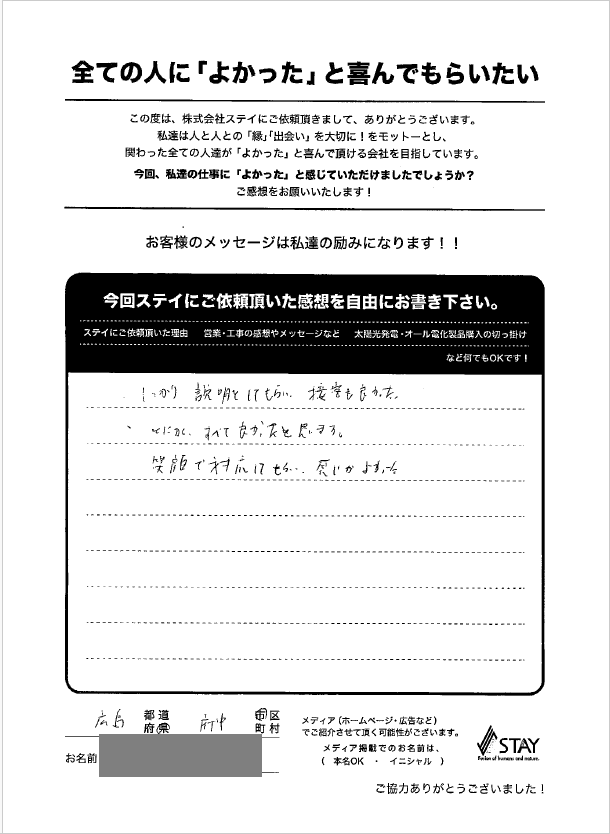 全ての人に「よかった」と喜んでもらいたい
この度は、株式会社ステイにご依頼頂きまして、ありがとうございます。
私達は人と人との「縁」「出会い」を大切に！をモットーとし、
関わった全ての人達が「よかった」と喜んで頂ける会社を目指しています。
今回、私達の仕事に「よかった」と感じていただけましたでしょうか？
ご感想をお願いいたします！
お客様のメッセージは私達の励みになります！！
今回ステイにご依頼頂いた感想を自由にお書き下さい。
ステイにご依頼頂いた理由　営業・工事の感想やメッセージなど　太陽光発電・オール電化製品購入の切っ掛け
など何でもOKです！
しっかり 説明をしてもらい、接客も良かった。
・とにかく、すべて良かったと思います。
笑顔で対応してもらい、感じがよかった
広島 都道府県 府中 市区町村
お名前
メディア（ホームページ・広告など）
でご紹介させて頂く可能性がございます。
メディア掲載でのお名前は、
（ 本名OK ・ イニシャル ）
STAY
Revive of humans and nature.
ご協力ありがとうございました！